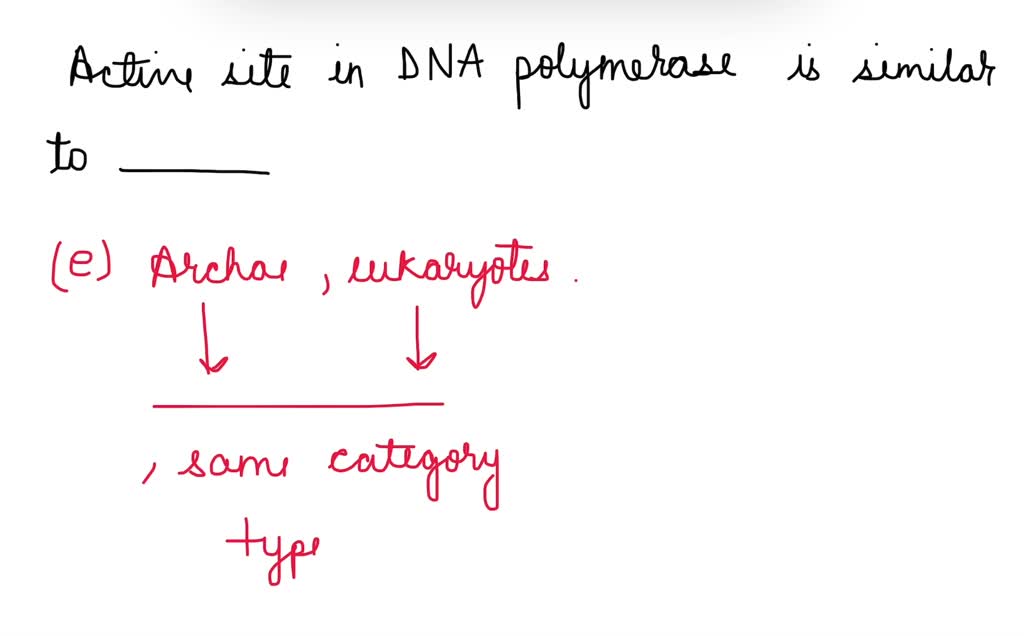 Active site in DNA polymerase is similar
to ______
(e) Archae , eukaryotes .
, same category
type